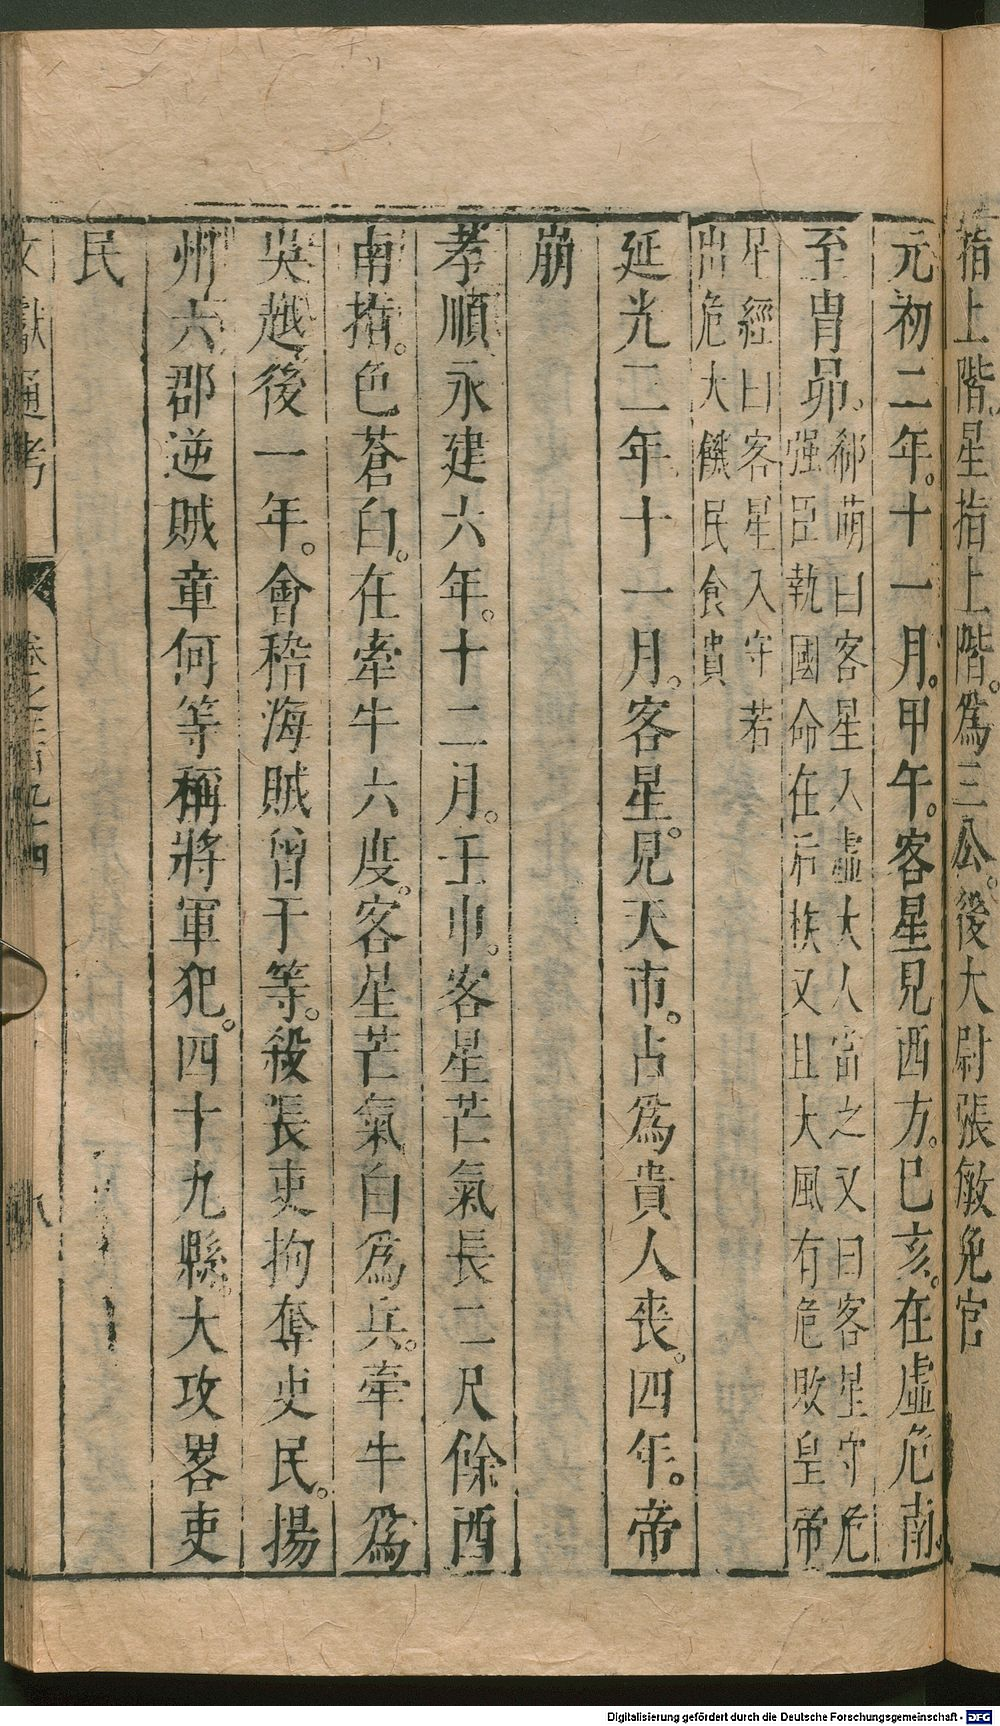 指上階。星指上階。爲三公。後大尉張敏免官
元初二年。十一月。甲午。客星見西方。己亥。在虛危南。
至胃昴。郗萌曰客星入虛大人當之又曰客星守危
强臣執國命在后族又且大風有危敗皇帝
星經曰客星入守若
出危大饑民食貴
延光二年十一月。客星。見天市。占爲貴人喪。四年。帝
崩
孝順永建六年。十二月。壬申。客星芒氣長二尺餘西
南指。色蒼白。在牽牛六度。客星芒氣白爲兵。牽牛爲
吳越後一年。會稽海賊曾于等。殺長吏拘奪吏民。揚
州六郡逆賊章何等稱將軍犯。四十九縣。大攻畧吏
民
文獻通考
卷之二百九十四
八
Digitalisierung gefördert durch die Deutsche Forschungsgemeinschaft - DFG